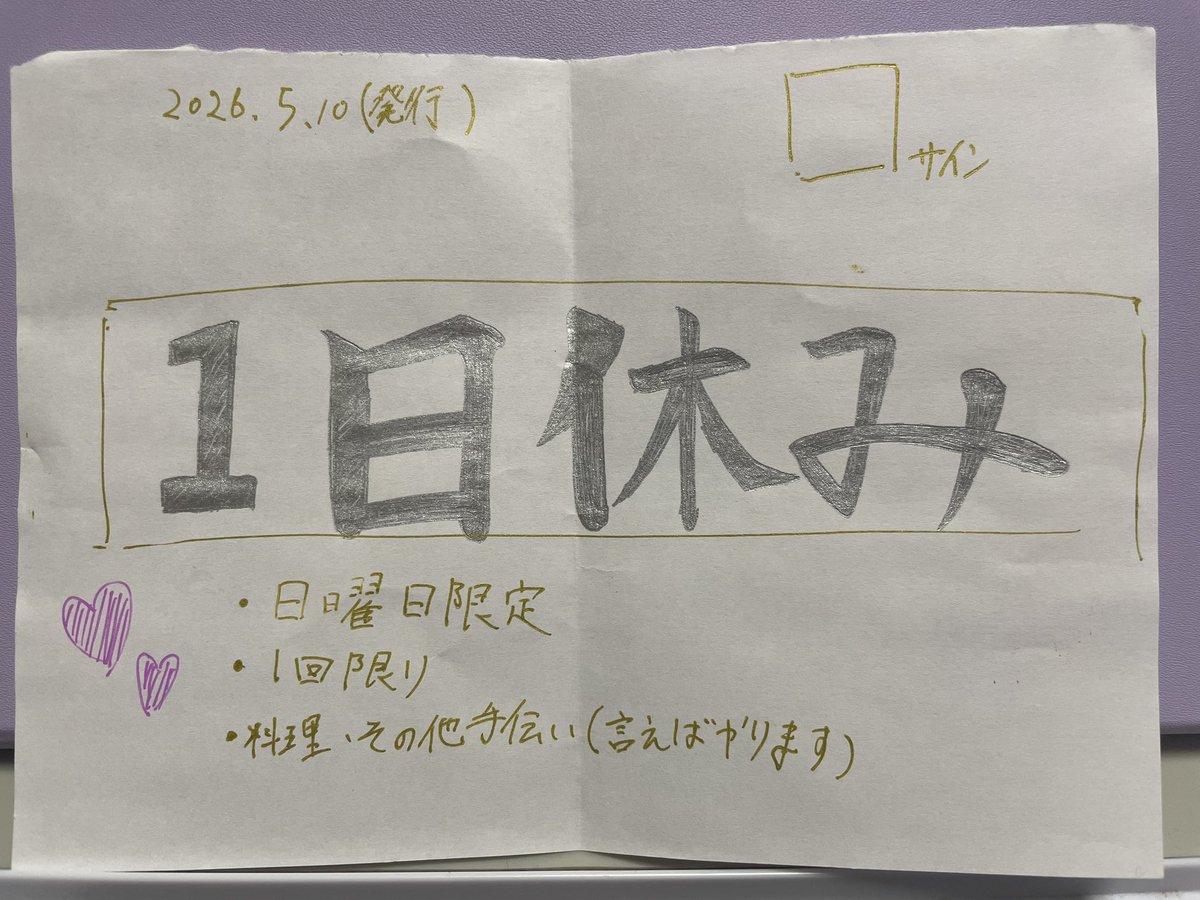 2026.5.10(発行)
サイン
1日休み
・日曜日限定
・1回限り
・料理、その他手伝い(言えばやります)